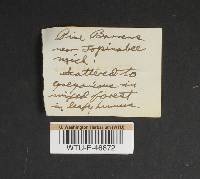 Pine Barrens
near Topinabee
Mich.
Scattered to
gregarious in
mixed forest
in leafy humus.
U. Washington Herbarium (WTU)
WTU-F-46672